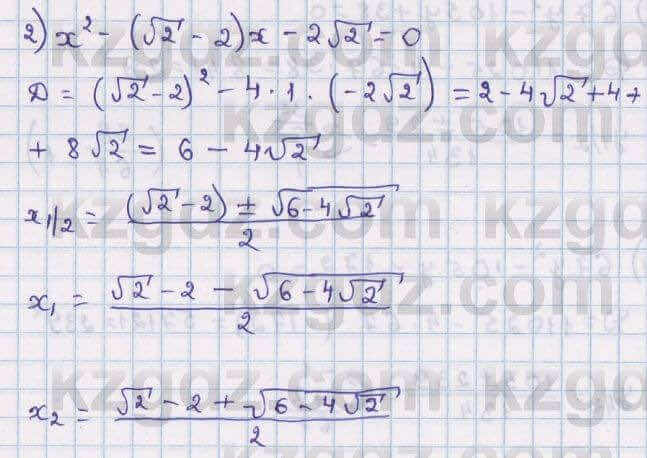 2) x² - (√2 - 2)x - 2√2 = 0
D = (√2 - 2)² - 4 · 1 · (-2√2) = 2 - 4√2 + 4 +
+ 8√2 = 6 - 4√2
x₁/₂ = ((√2 - 2) ± √(6 - 4√2)) / 2
x₁ = (√2 - 2 - √(6 - 4√2)) / 2
x₂ = (√2 - 2 + √(6 - 4√2)) / 2
kzgdz.com
kzgdz.com
kzgdz.com
kzgdz.com
kzgdz.com